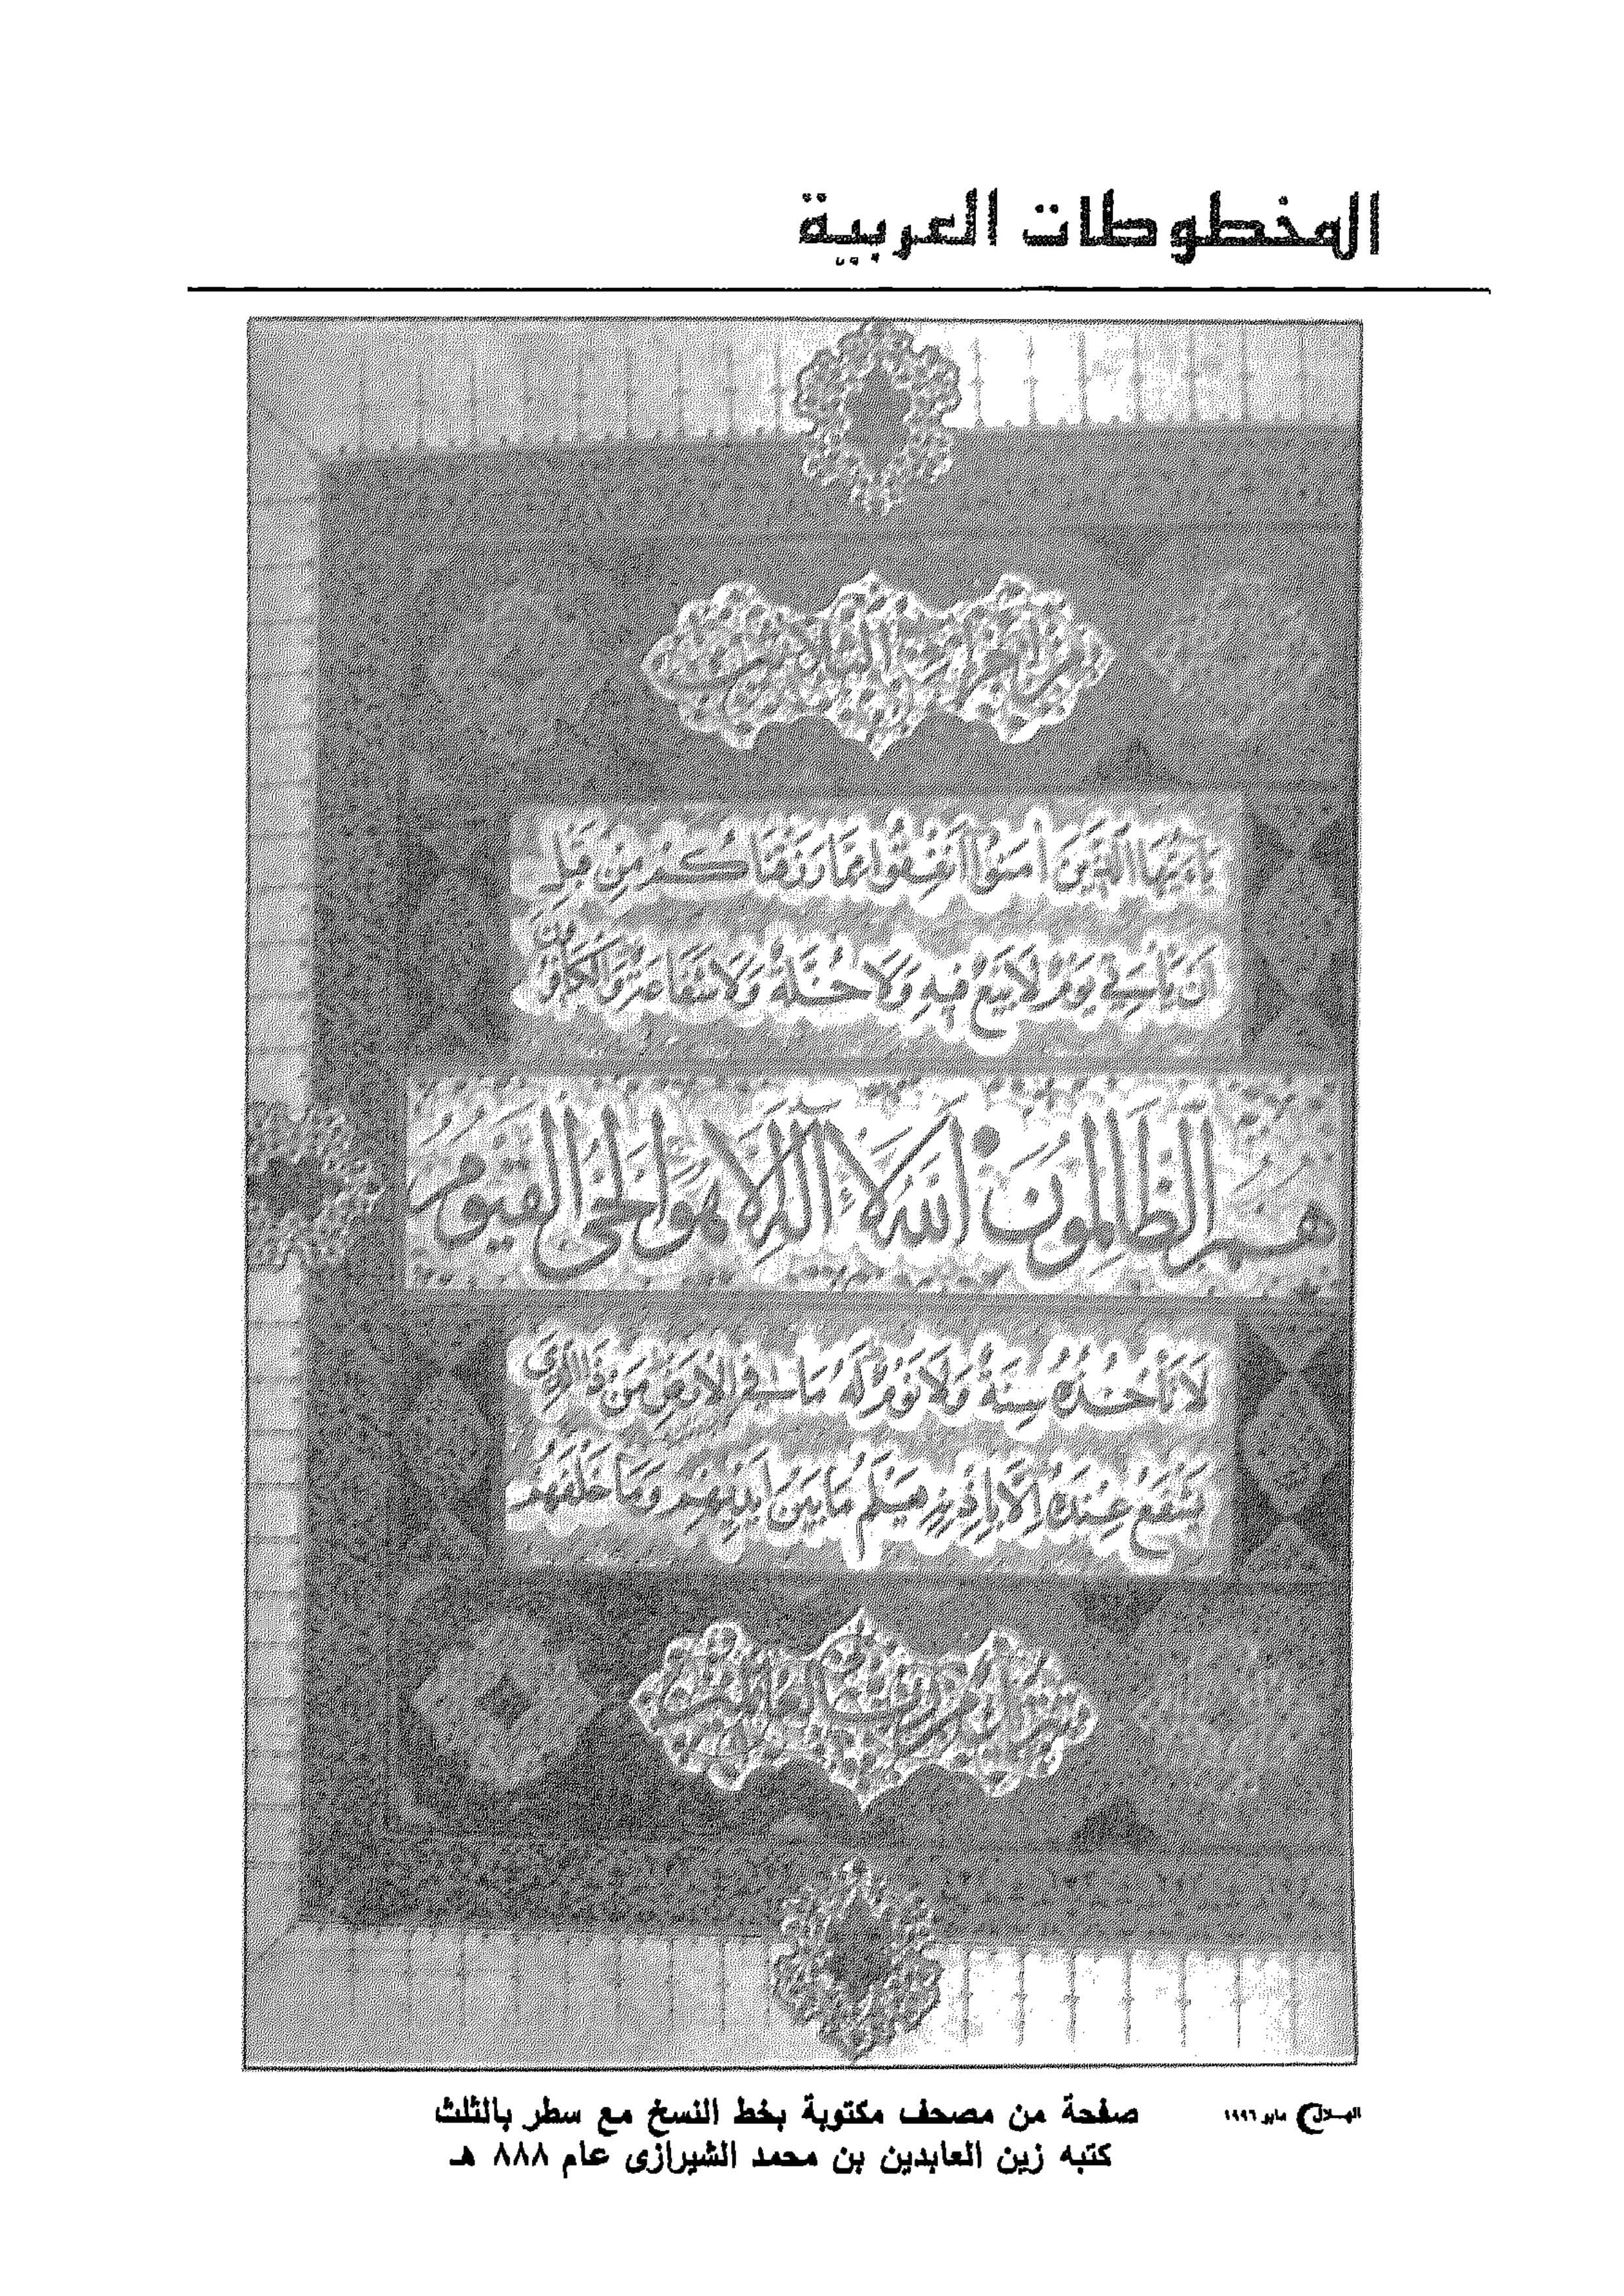 المخطوطات العربية
يَا أَيُّهَا الَّذِينَ اٰمَنُوا أَنْفِقُوا مِمَّا رَزَقْنَاكُمْ مِنْ قَبْلِ
اَنْ يَأْتِيَ يَوْمٌ لَا بَيْعٌ فِيهِ وَلَا خُلَّةٌ وَلَا شَفَاعَةٌ وَالْكَافِرُونَ
هُمُ الظَّالِمُونَ اَللّٰهُ لَا إِلٰهَ إِلَّا هُوَ الْحَيُّ الْقَيُّومُ
لَا تَأْخُذُهُ سِنَةٌ وَلَا نَوْمٌ لَهُ مَا فِي الْاَرْضِ مَنْ ذَا الَّذِي
يَشْفَعُ عِنْدَهُ اِلَّا بِاِذْنِهِ يَعْلَمُ مَا بَيْنَ اَيْدِيهِمْ وَمَا خَلْفَهُمْ
صفحة من مصحف مكتوبة بخط النسخ مع سطر بالثلث
كتبه زين العابدين بن محمد الشيرازى عام ٨٨٨ هـ
الهلال مايو ١٩٩٦